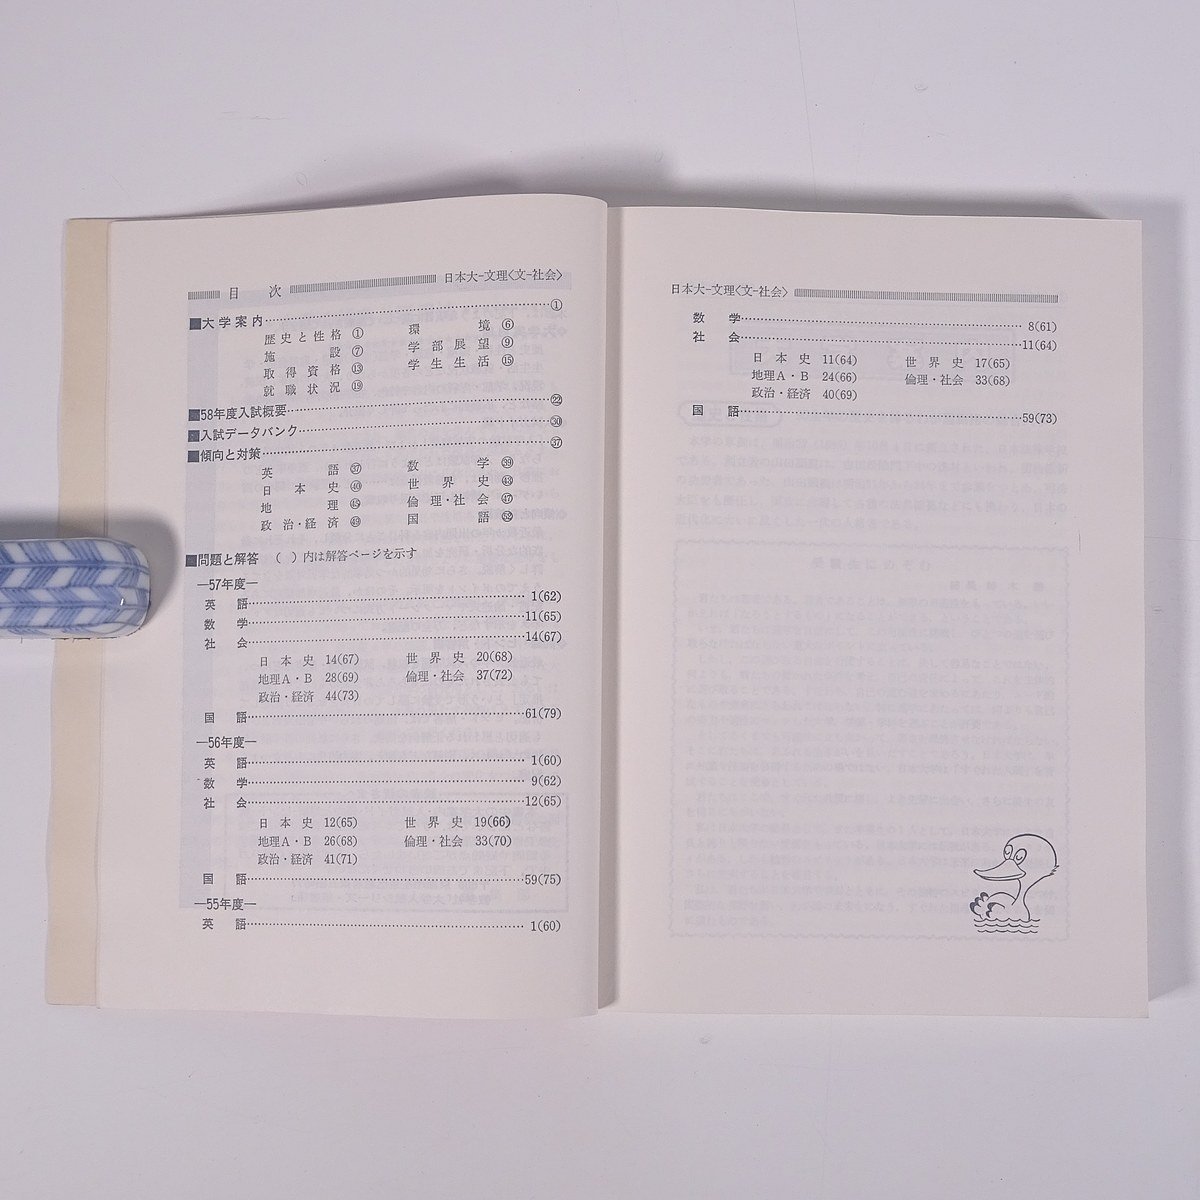 目 次 日本大-文理〈文-社会〉
■大学案内 ①
歴史と性格 ① 環境 ⑥
施設 ⑦ 学部展望 ⑨
取得資格 ⑬ 学生生活 ⑮
就職状況 ⑲
■58年度入試概要 ㉒
■入試データバンク ㉚
■傾向と対策 ㊲
英語 ㊲ 数学 ㊴
日本史 ㊵ 世界史 ㊸
地理 ㊺ 倫理・社会 ㊼
政治・経済 ㊾ 国語
■問題と解答 ( )内は解答ページを示す
―57年度―
英語 1(62)
数学 11(65)
社会 14(67)
日本史 14(67) 世界史 20(68)
地理A・B 28(69) 倫理・社会 37(72)
政治・経済 44(73)
国語 61(79)
―56年度―
英語 1(60)
数学 9(62)
社会 12(65)
日本史 12(65) 世界史 19(66)
地理A・B 26(68) 倫理・社会 33(70)
政治・経済 41(71)
国語 59(75)
―55年度―
英語 1(60)
日本大-文理〈文-社会〉
数学 8(61)
社会 11(64)
日本史 11(64) 世界史 17(65)
地理A・B 24(66) 倫理・社会 33(68)
政治・経済 40(69)
国語 59(73)